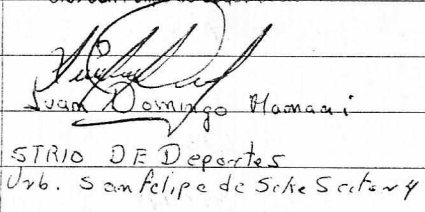 Juan Domingo Mamani
STRIO DE Deportes
Urb. San felipe de Seke Sector 4